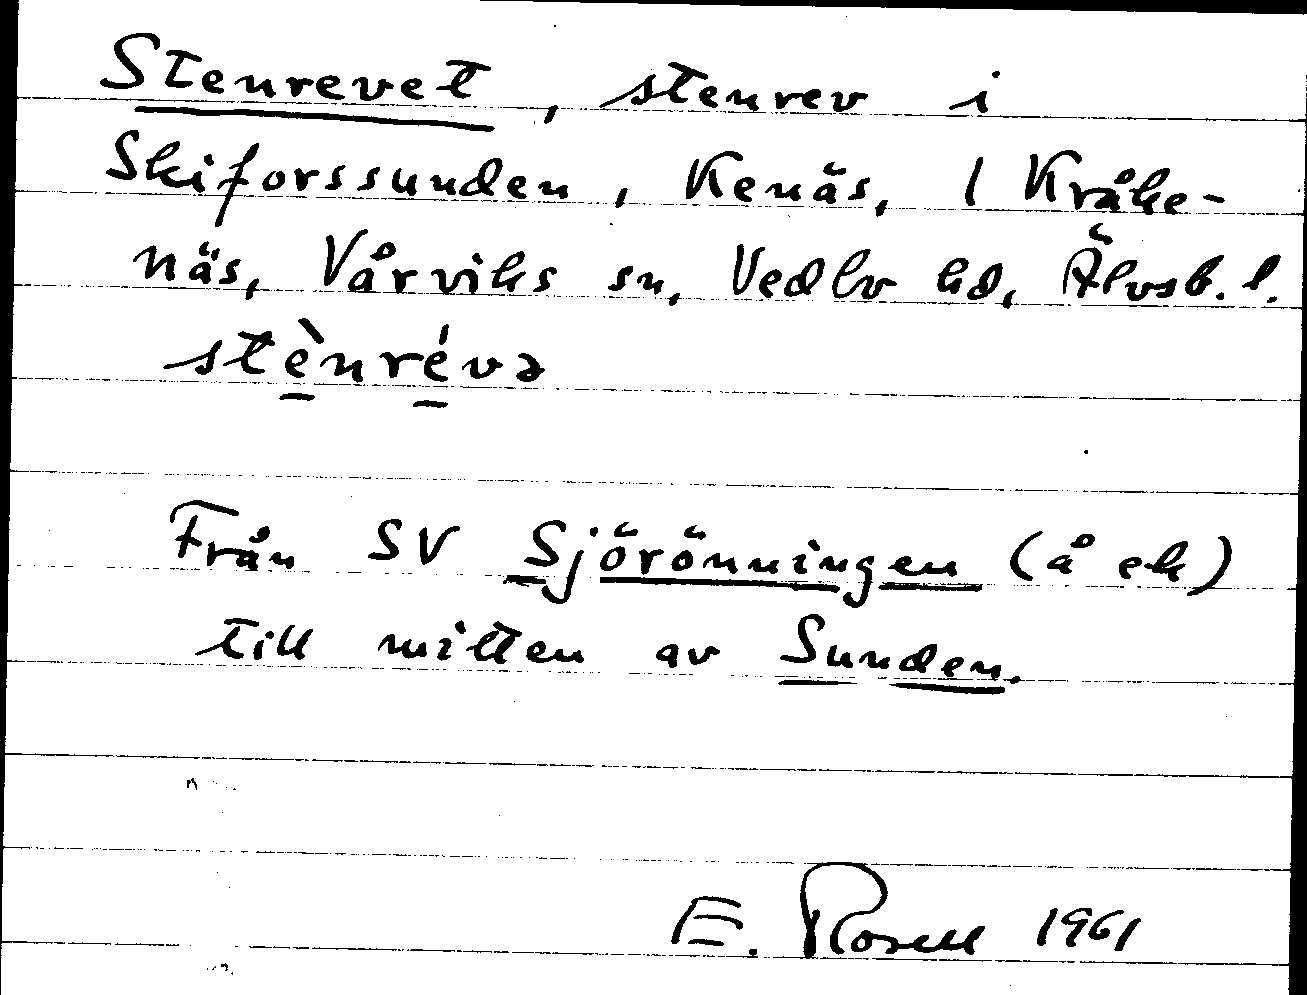 Stenrevet, stenrev i
Skiforssunden, Kenäs, 1 Kråke-
näs, Vårviks sn, Vedbo hd, Älvsb. l.
stènrévə
Från SV Sjörönningen (å ek)
till mitten av Sunden.
E. Rosell 1961